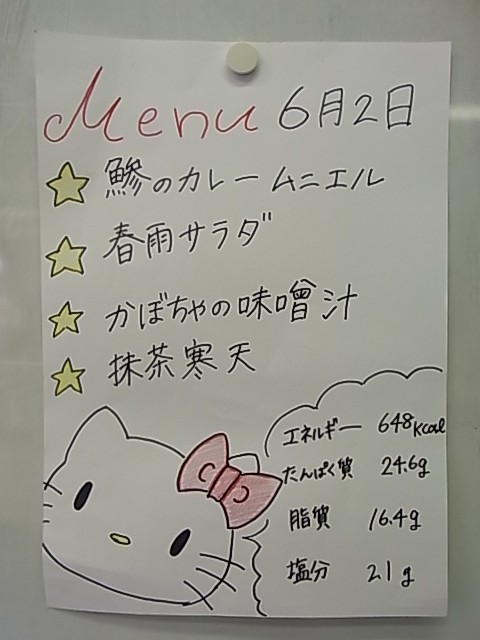 Menu 6月2日
鯵のカレームニエル
春雨サラダ
かぼちゃの味噌汁
抹茶寒天
エネルギー 648kcal
たんぱく質 24.6g
脂質 16.4g
塩分 2.1g